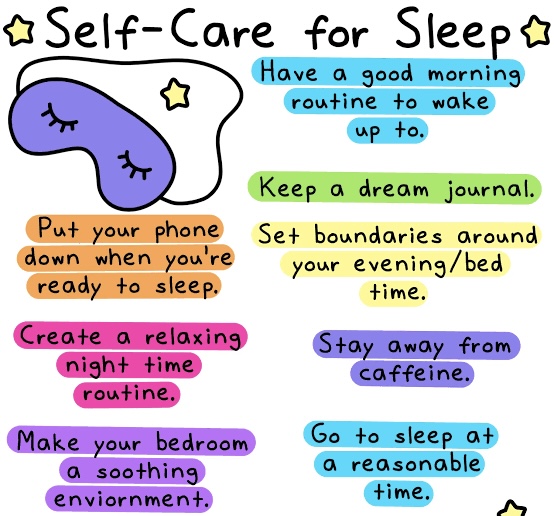 Self-Care for Sleep
Have a good morning
routine to wake
up to.
Keep a dream journal.
Put your phone
down when you're
ready to sleep.
Set boundaries around
your evening/bed
time.
Create a relaxing
night time
routine.
Stay away from
caffeine.
Make your bedroom
a soothing
enviornment.
Go to sleep at
a reasonable
time.